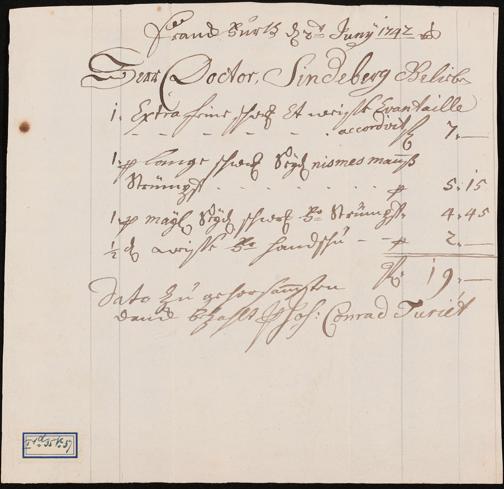 Franckfurth d 2t Juny 1742
Frau Doctor, Sindeberg Beliebe
1. Extra feine schwz Et weiße Evantaille
accordirt f 7.—
1. p lange schwz Seyd nismes manß
Strümpff p 5.15
1. p mayl Seyd schwz Strümpff. 4.45
½ d weiße handschu p 2.—
f 19.—
Dato zu gehorsamsten
danck bezahlt p Joh: Conrad Turiet